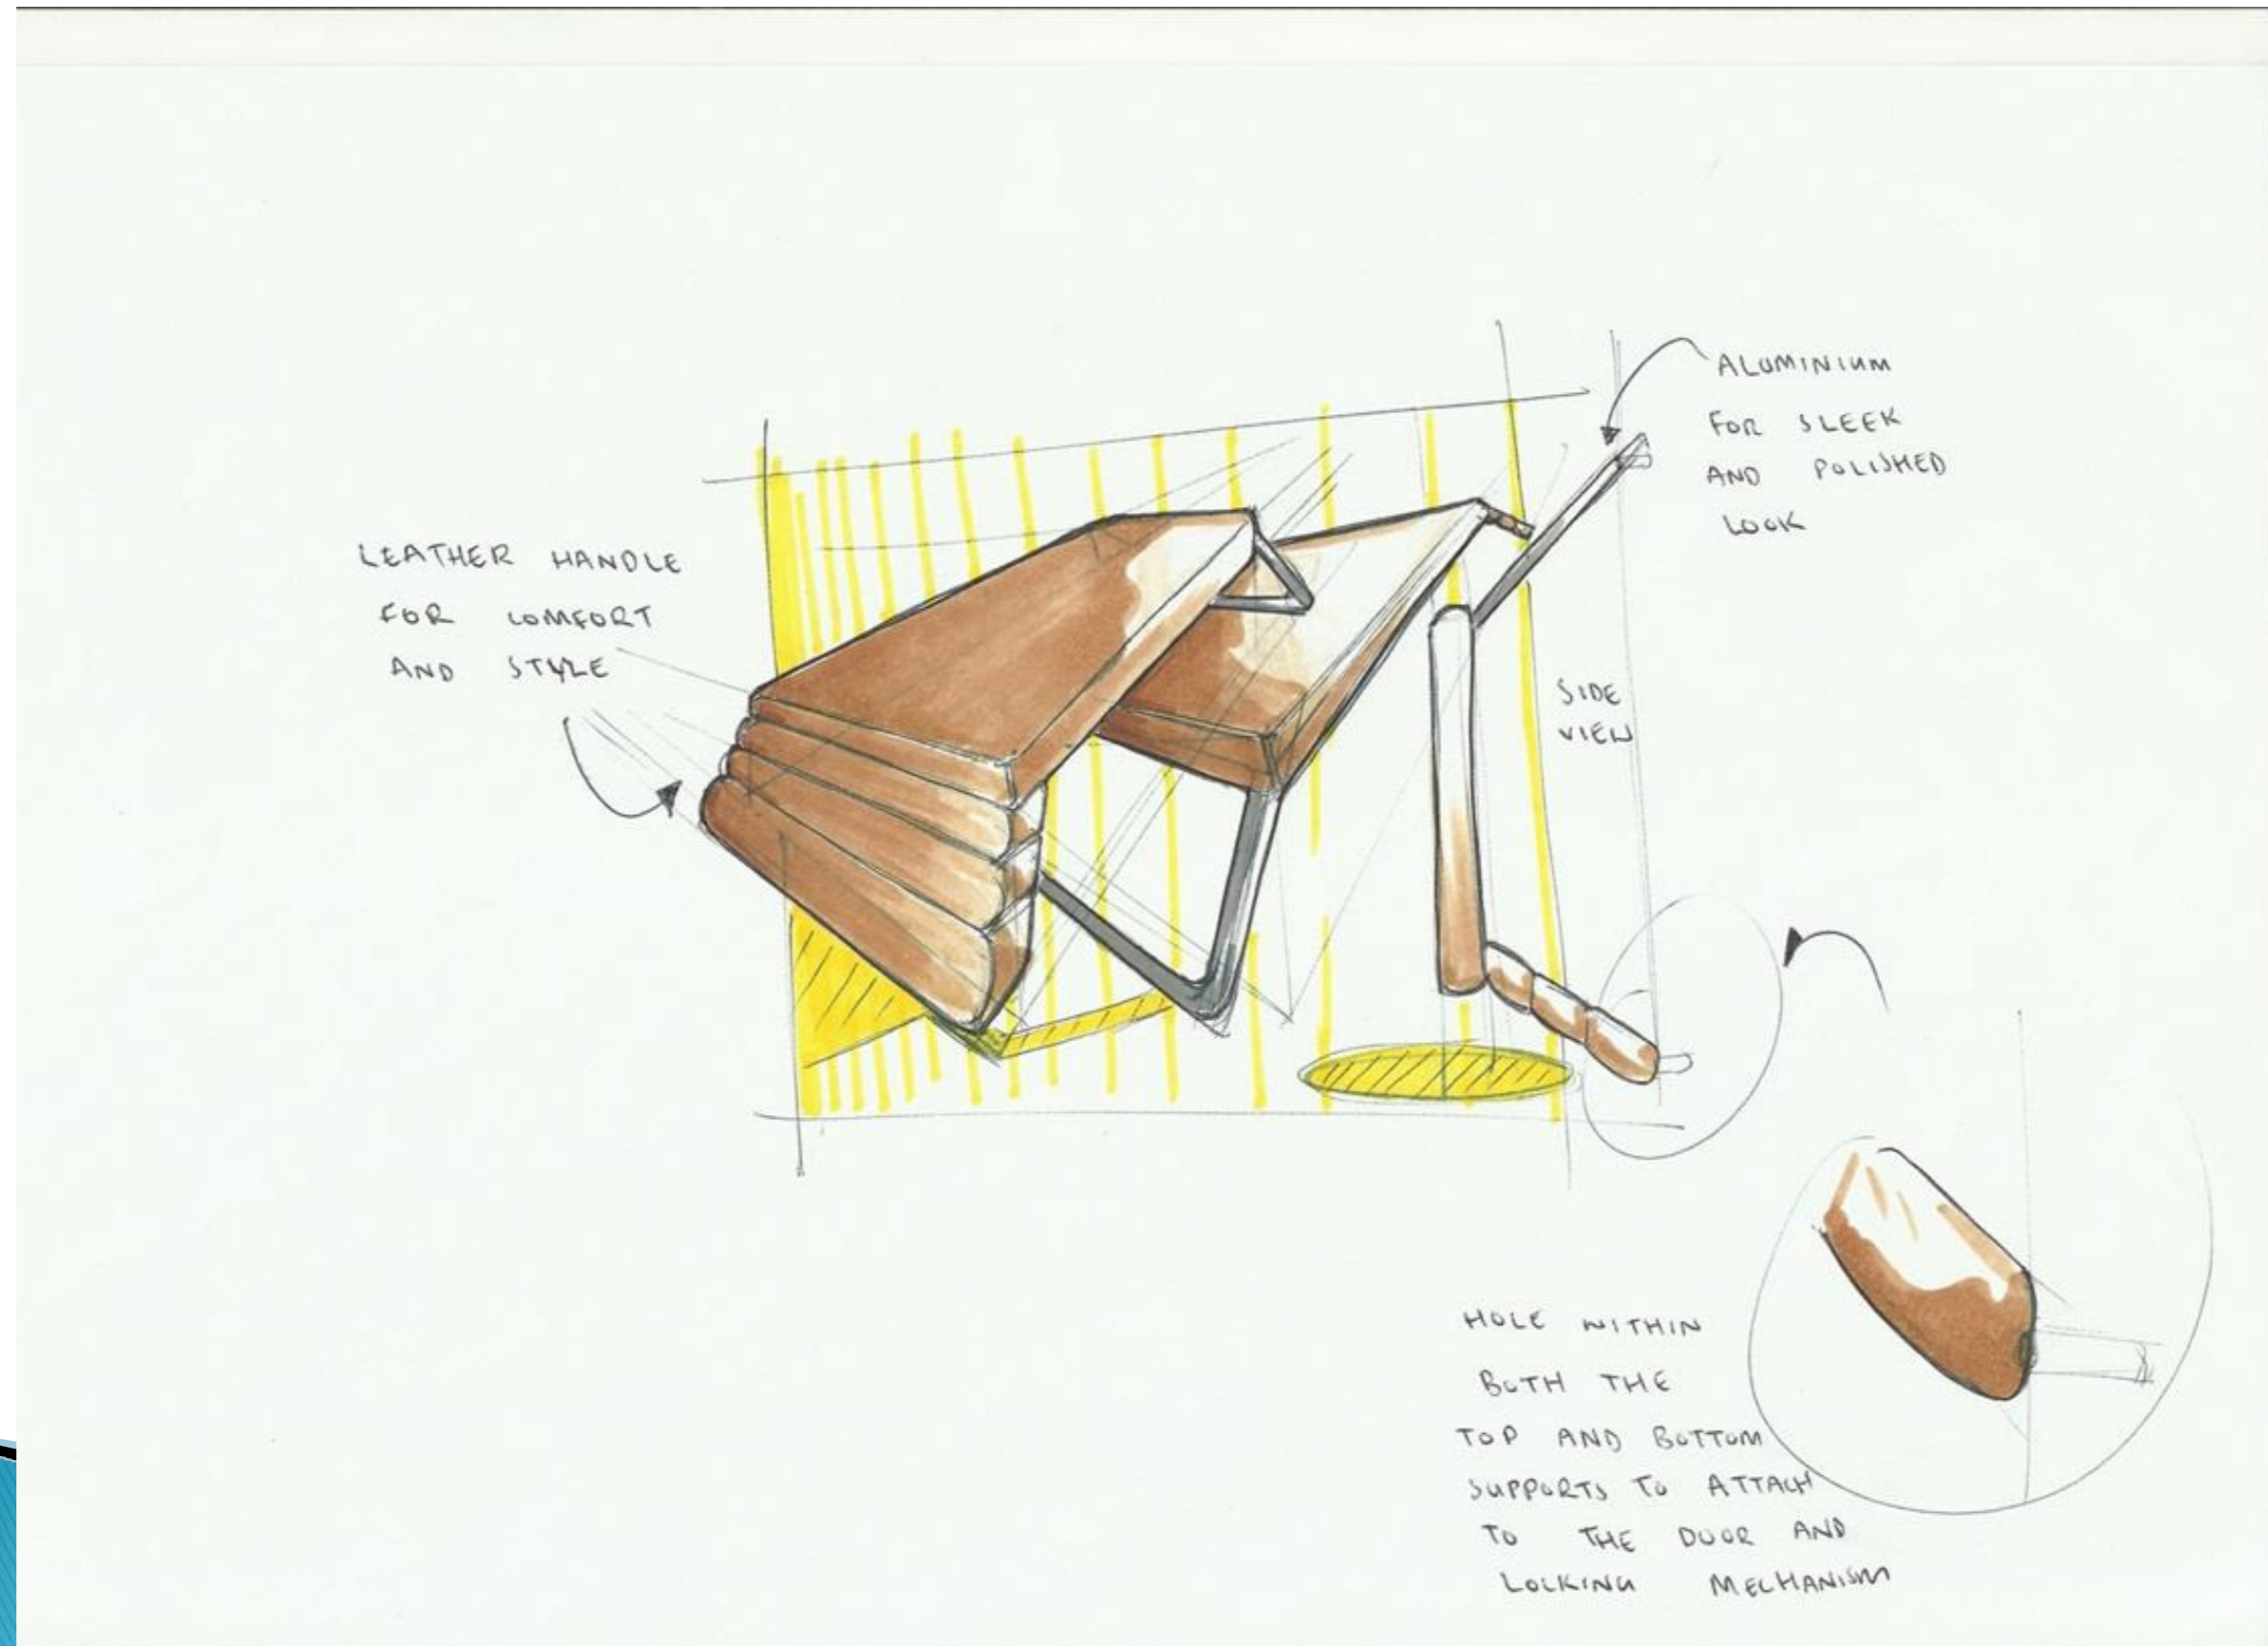 LEATHER HANDLE
FOR COMFORT
AND STYLE
ALUMINIUM
FOR SLEEK
AND POLISHED
LOOK
SIDE
VIEW
HOLE WITHIN
BOTH THE
TOP AND BOTTOM
SUPPORTS TO ATTACH
TO THE DOOR AND
LOCKING MECHANISM